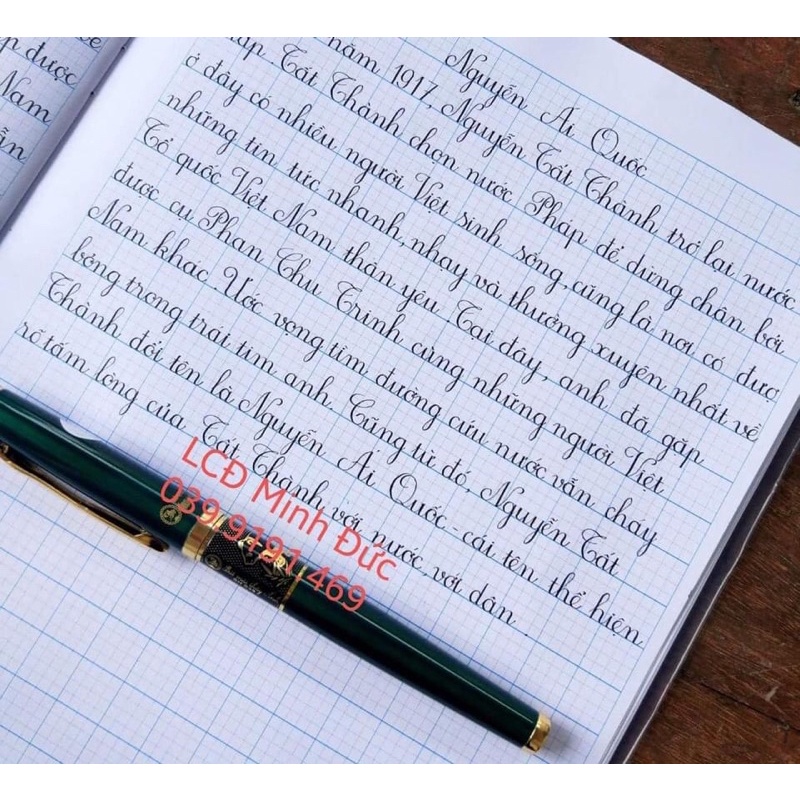 về
p được
Nam
ẫn
Nguyễn Ái Quốc
năm 1917, Nguyễn Tất Thành trở lại nước
áp. Tất Thành chọn nước Pháp để dừng chân bởi
ở đây có nhiều người Việt sinh sống, cũng là nơi có đượ
những tin tức nhanh, nhạy và thường xuyên nhất về
Tổ quốc Việt Nam thân yêu. Tại đây, anh đã gặp
được cụ Phan Chu Trinh cùng những người Việt
Nam khác. Ước vọng tìm đường cứu nước vẫn cháy
bỏng trong trái tim anh. Cũng từ đó, Nguyễn Tất
Thành đổi tên là Nguyễn Ái Quốc - cái tên thể hiện
rõ tấm lòng của Tất Thành với nước, với dân.
LCĐ Minh Đức
039 9191 469